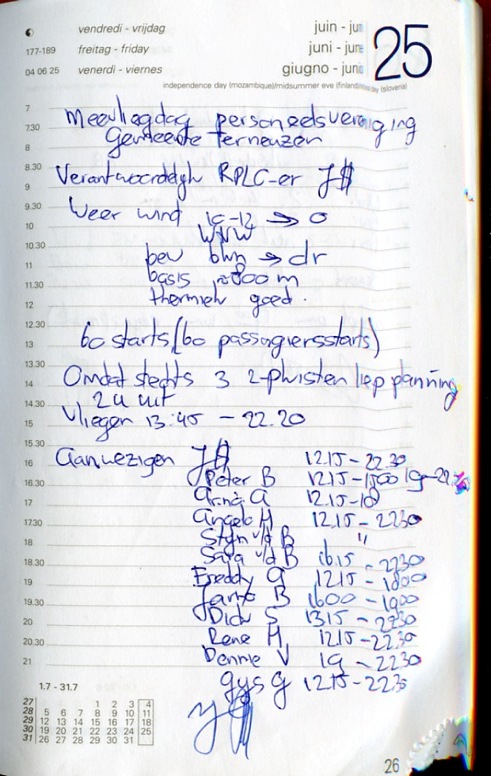 vendredi - vrijdag juin - ju
177-189 freitag - friday juni - june 25
04 06 25 venerdi - viernes giugno - junio
independence day (mozambique)/midsummer eve (finland) day (slovenia)
7
7.30 Meevliegdag personeelsvereniging
8 Gemeente Terneuzen
8.30 Verantwoordelyk RPLC-er
9
9.30 Weer wind 10-12 → 0
10 WNW
10.30 bew bkn → dr
11 basis ≈800 m
11.30 thermiek goed.
12
12.30 60 starts (60 passagiersstarts)
13
13.30 Omdat slechts 3 2-plristen liep planning
14 2u uit
14.30 Vliegen 13:45 - 22.20
15
15.30 Aanwezigen 12.15 - 22.30
16 Peter B 12.15 - 1500 19-22.30
16.30 Arno A 12.15-18
17 Angelo H 12.15 - 2230
17.30 Styn v/d B "
18 Saya v/d B 16.15 - 2230
18.30 Freddy G 1215 - 1800
19 B 1600 - 1900
19.30 Dick S 1315 - 2230
20 Rene H 1215 - 2230
20.30 Dennie V 19 - 2230
21 Gys G 12.15 - 2230
1.7 - 31.7
27 1 2 3 4
28 5 6 7 8 9 10 11
29 12 13 14 15 16 17 18
30 19 20 21 22 23 24 25
31 26 27 28 29 30 31
26